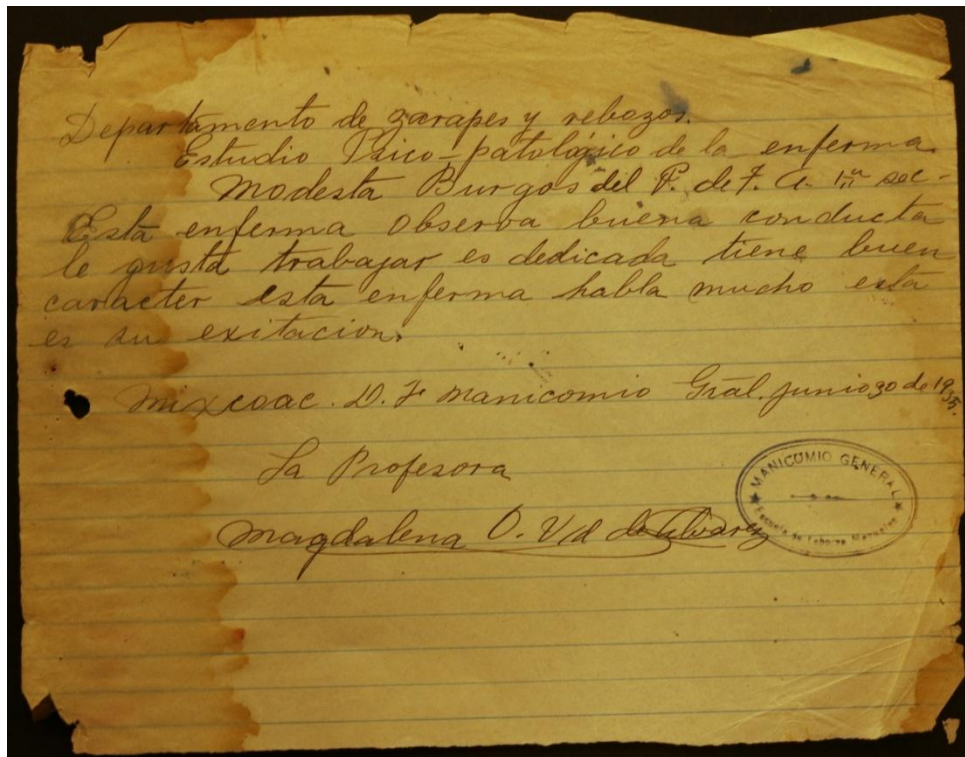 Departamento de zarapes y rebozos.
Estudio Psico-patológico de la enferma
Modesta Burgos del P. de F. A. 1ª sec-
Esta enferma observa buena conducta
le gusta trabajar es dedicada tiene buen
caracter esta enferma habla mucho esta
es su exitacion.
Mixcoac. D. F. Manicomio Gral. junio 30 de 1935.
La Profesora
Magdalena O. Vd de Alvarez
MANICOMIO GENERAL
Escuela de Labores Manuales